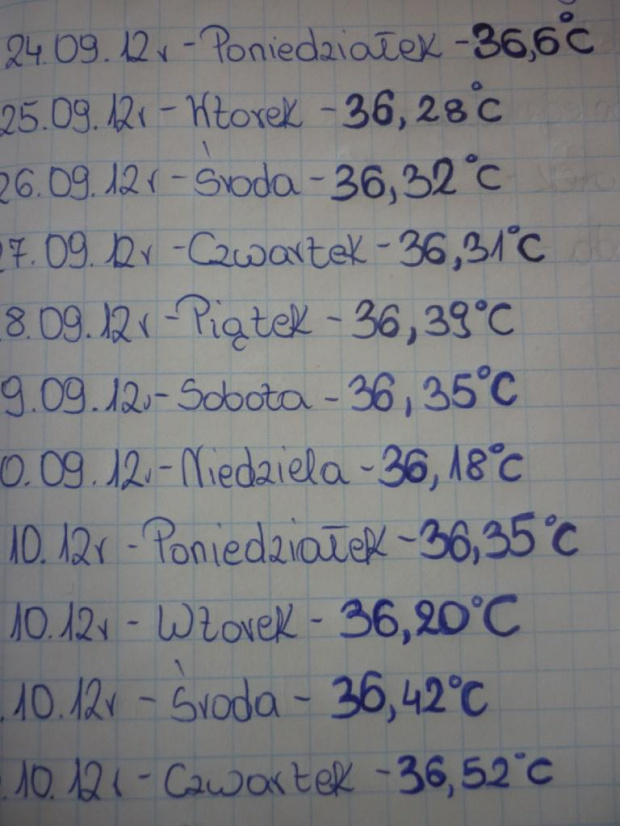 24.09.12r - Poniedziałek - 36,6°C
25.09.12r - Wtorek - 36,28°C
26.09.12r - Środa - 36,32°C
7.09.12r - Czwartek - 36,31°C
8.09.12r - Piątek - 36,39°C
9.09.12r - Sobota - 36,35°C
0.09.12r - Niedziela - 36,18°C
10.12r - Poniedziałek - 36,35°C
10.12r - Wtorek - 36,20°C
.10.12r - Środa - 36,42°C
.10.12r - Czwartek - 36,52°C